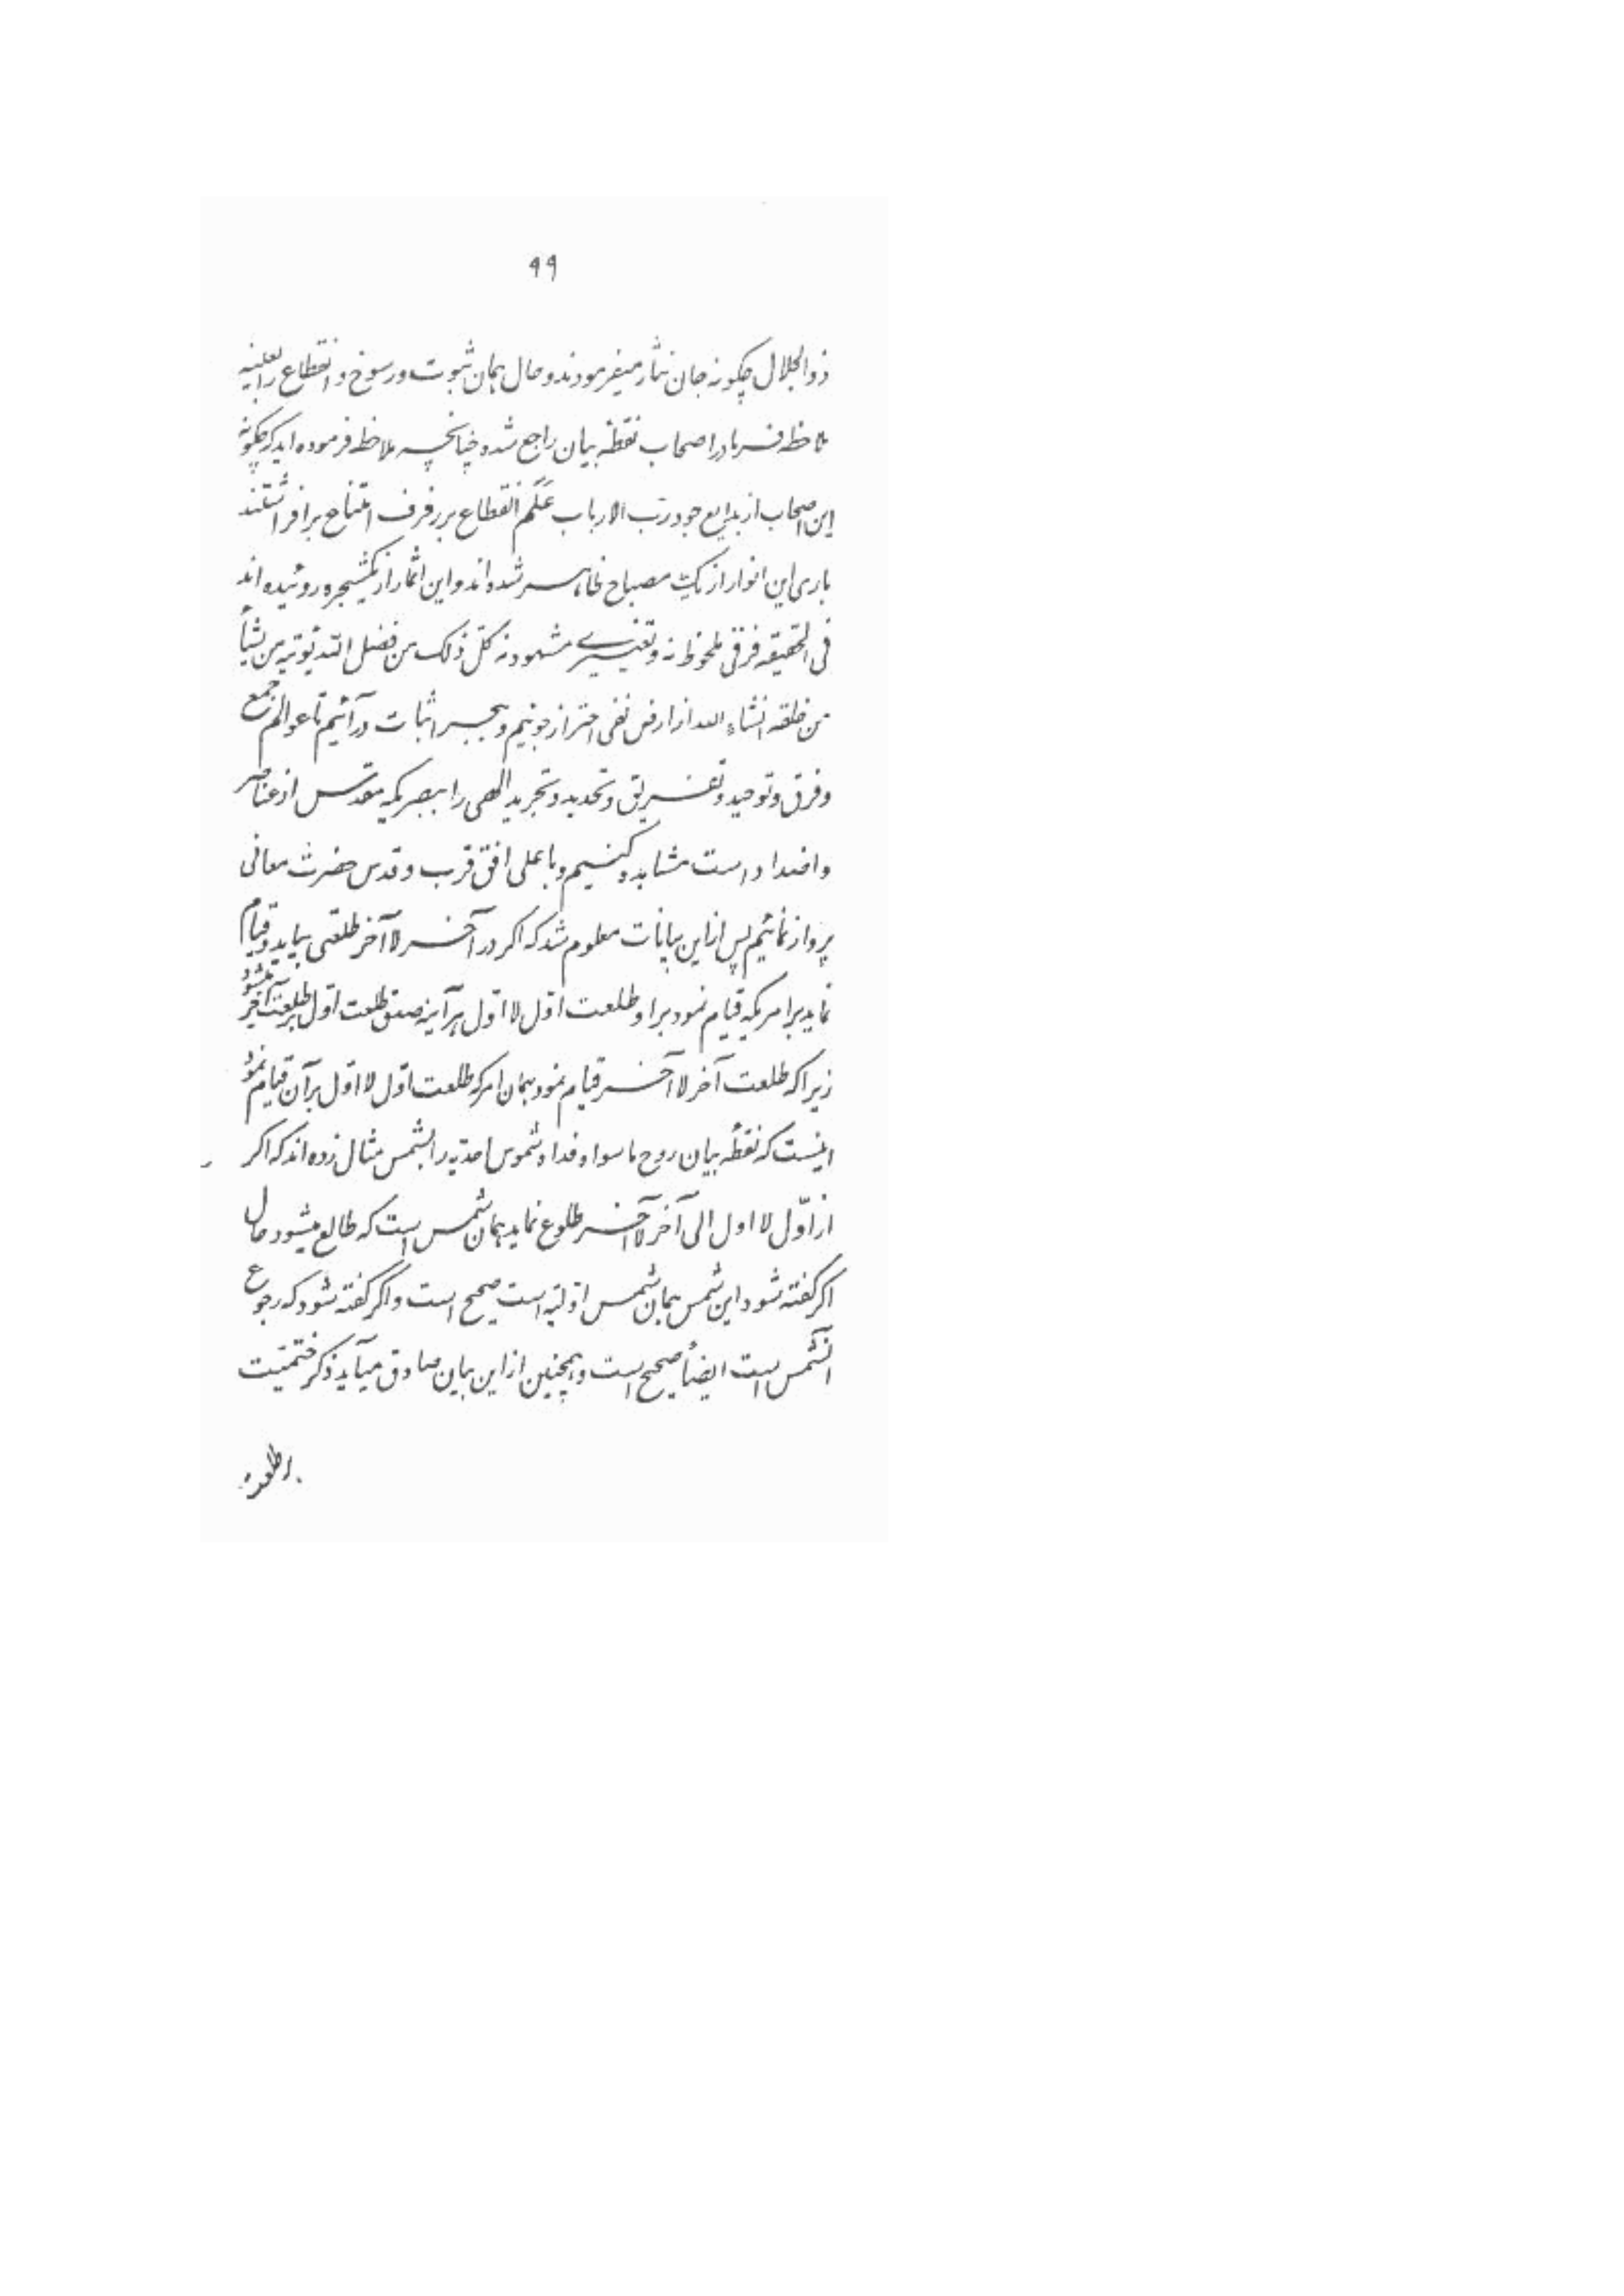 ۹۹
ذوالجلال چگونه جان نثار میفرمودند و حال همان ثبوت و رسوخ و انقطاع را بعینه
ملاحظه فرما در اصحاب نقطهٔ بیان راجع شده چنانچه ملاحظه فرموده‌اید که چگونه
این اصحاب از بدایع جود ربّ الارباب عَلَم انقطاع بر رفرف امتناع برافراشتند
باری این انوار از یک مصباح ظاهر شده‌اند و این اثمار از یکشجره روئیده‌اند
فی الحقیقه فرقی ملحوظ نه و تغییری مشهود نه کلّ ذلک من فضل الله یؤتیه من یشأ
من خلقه انشاء الله از ارض نفی احتراز جوئیم و ببحر اثبات درآئیم تا عوالم جمع
و فرق و توحید و تفریق و تحدید و تجرید الهی را ببصریکه مقدّس از عناصر
و اضداد است مشاهده کنیم و باعلی افق قرب و قدس حضرت معانی
پرواز نمائیم پس از این بیانات معلوم شد که اگر در آخر لا آخر طلعتی بیاید و قیام
نماید بر امریکه قیام نمود بر او طلعت اوّل لا اوّل هرآینه صدق طلعت اوّل بر طلعت آخر میشود
زیرا که طلعت آخر لا آخر قیام نمود بهمان امر که طلعت اوّل لا اوّل بر آن قیام نمود
اینست که نقطهٔ بیان روح ما سواه فداه شموس احدیه را بشمس مثال زده‌اند که اگر
از اوّل لا اول الی آخر لا آخر طلوع نماید همان شمس است که طالع میشود حال
اگر گفته شود این شمس همان شمس اوّلیّه است صحیح است و اگر گفته شود که رجوع
آنشمس است ایضاً صحیح است و همچنین از این بیان صادق میآید ذکر ختمیّت
بر طلعت